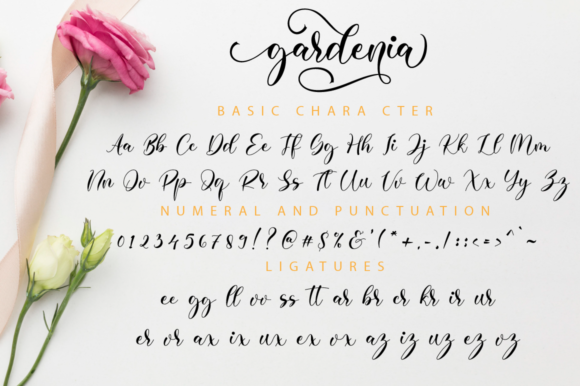 gardenia
BASIC CHARA CTER
Aa Bb Cc Dd Ee Ff Gg Hh Ii Jj Kk Ll Mm
Nn Oo Pp Qq Rr Ss Tt Uu Vv Ww Xx Yy Zz
NUMERAL AND PUNCTUATION
0123456789!?@#$%&'(*+,-./:;<=>^`~
LIGATURES
ee gg ll oo ss tt ar br er kr ir ur
er or ax ix ux ex ox az iz uz ez oz